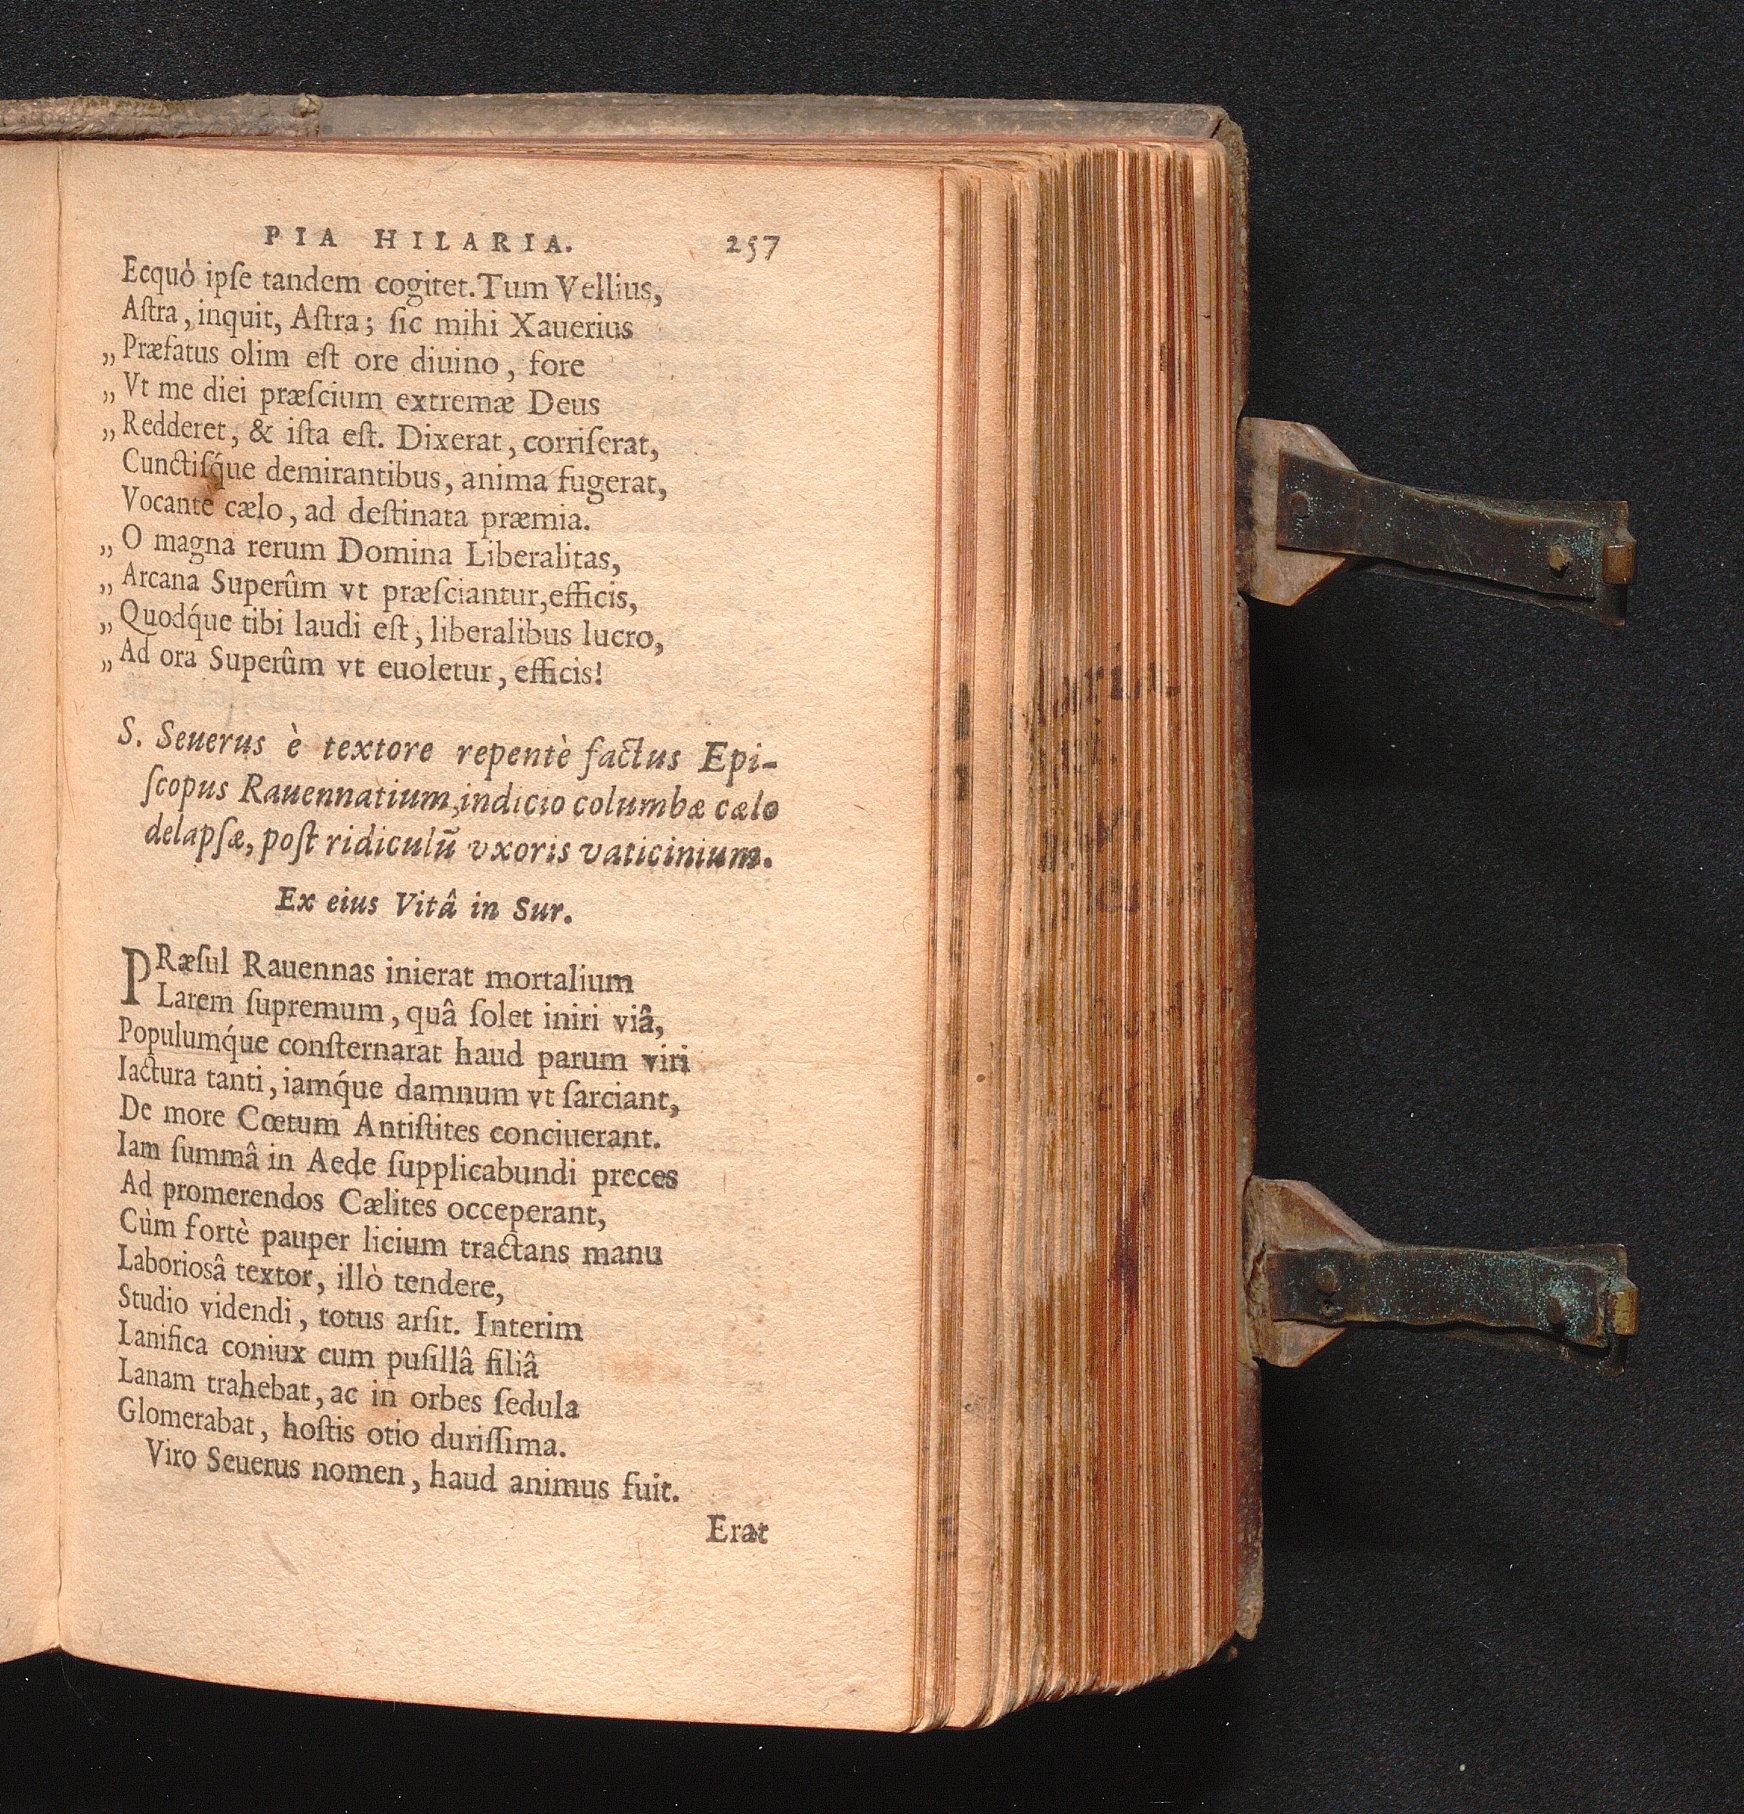 PIA HILARIA. 257
Ecquò ipſe tandem cogitet. Tum Vellius,
Aſtra, inquit, Aſtra; ſic mihi Xauerius
„ Præfatus olim eſt ore diuino, fore
„ Vt me diei præſcium extremæ Deus
„ Redderet, & iſta eſt. Dixerat, corriſerat,
Cunctiſq́ue demirantibus, anima fugerat,
Vocante cælo, ad deſtinata præmia.
„ O magna rerum Domina Liberalitas,
„ Arcana Superûm vt præſciantur, efficis,
„ Quodq́ue tibi laudi eſt, liberalibus lucro,
„ Ad ora Superûm vt euoletur, efficis!
S. Seuerus è textore repentè factus Epi-
ſcopus Rauennatium, indicio columbæ cælo
delapſæ, poſt ridiculū vxoris vaticinium.
Ex eius Vitâ in Sur.
PRæſul Rauennas inierat mortalium
Larem ſupremum, quâ ſolet iniri viâ,
Populumq́ue conſternarat haud parum viri
Iactura tanti, iamq́ue damnum vt ſarciant,
De more Cœtum Antiſtites conciuerant.
Iam ſummâ in Aede ſupplicabundi preces
Ad promerendos Cælites occeperant,
Cùm fortè pauper licium tractans manu
Laboriosâ textor, illò tendere,
Studio videndi, totus arſit. Interim
Lanifica coniux cum puſillâ filiâ
Lanam trahebat, ac in orbes ſedula
Glomerabat, hoſtis otio duriſſima.
Viro Seuerus nomen, haud animus fuit.
Erat